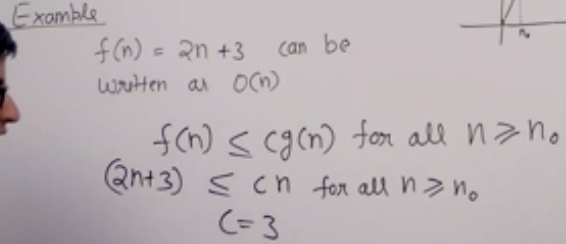 Example
f(n) = 2n +3 can be
written as O(n)
n₀
f(n) ≤ cg(n) for all n ≥ n₀
(2n+3) ≤ cn for all n ≥ n₀
C = 3